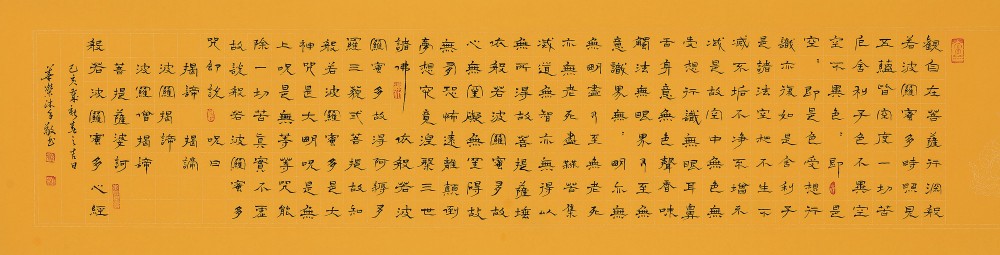 觀自在菩薩行深般
若波羅蜜多時照見
五蘊皆空度一切苦
厄舍利子色不異空
空不異色色即是
空空即是色受想行
識亦復如是舍利子
是諸法空相不生不
滅不垢不淨不增不
減是故空中無色無
受想行識無眼耳鼻
舌身意無色聲香味
觸法無眼界乃至無
意識界無無明亦無
無明盡乃至無老死
亦無老死盡無苦集
滅道無智亦無得以
無所得故菩提薩埵
依般若波羅蜜多故
心無罣礙無罣礙故
無有恐怖遠離顛倒
夢想究竟涅槃三世
諸佛依般若波
羅蜜多故得阿耨多
羅三藐三菩提故知
般若波羅蜜多是大
神咒是大明咒是無
上咒是無等等咒能
除一切苦真實不虛
故說般若波羅蜜多
咒即說咒曰
揭諦揭諦
波羅揭諦
波羅僧揭諦
菩提薩婆訶
般若波羅蜜多心經
之吉日
沐手敬書